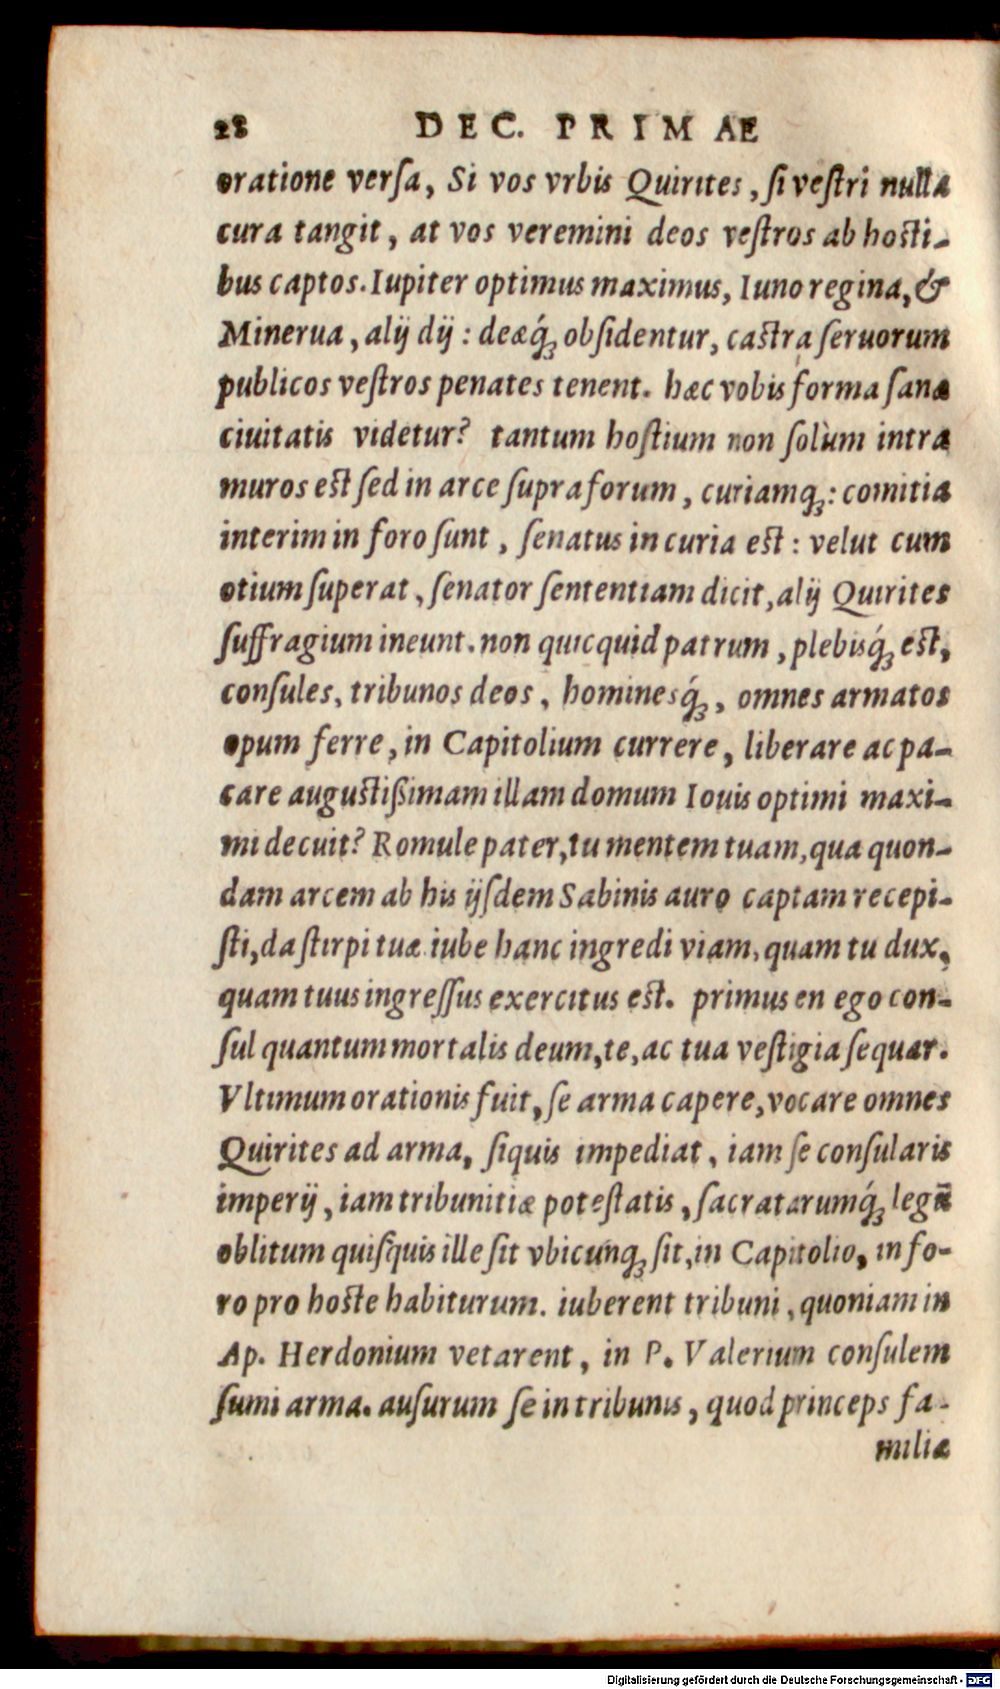 28 DEC. PRIMAE
oratione verſa, Si vos vrbis Quirites, ſi veſtri nulla
cura tangit, at vos veremini deos veſtros ab hoſti-
bus captos. Iupiter optimus maximus, Iuno regina, &
Minerua, alij dij: deæq́ꝫ obſidentur, caſtra ſeruorum
publicos veſtros penates tenent. hæc vobis forma ſanæ
ciuitatis videtur? tantum hoſtium non ſolùm intra
muros eſt ſed in arce ſupra forum, curiamqꝫ: comitia
interim in foro ſunt, ſenatus in curia eſt: velut cum
otium ſuperat, ſenator ſententiam dicit, alij Quirites
ſuffragium ineunt. non quicquid patrum, plebisq́ꝫ eſt,
conſules, tribunos deos, hominesq́ꝫ, omnes armatos
opum ferre, in Capitolium currere, liberare ac pa-
care auguſtißimam illam domum Iouis optimi maxi-
mi decuit? Romule pater, tu mentem tuam, qua quon-
dam arcem ab his ijſdem Sabinis auro captam recepi-
ſti, da ſtirpi tuæ iube hanc ingredi viam, quam tu dux,
quam tuus ingreſſus exercitus eſt. primus en ego con-
ſul quantum mortalis deum, te, ac tua veſtigia ſequar.
Vltimum orationis fuit, ſe arma capere, vocare omnes
Quirites ad arma, ſiquis impediat, iam ſe conſularis
imperij, iam tribunitiæ poteſtatis, ſacratarumq́ꝫ legū
oblitum quiſquis ille ſit vbicunqꝫ ſit, in Capitolio, in fo-
ro pro hoſte habiturum. iuberent tribuni, quoniam in
Ap. Herdonium vetarent, in P. Valerium conſulem
ſumi arma. auſurum ſe in tribunis, quod princeps fa-
miliæ
Digitalisierung gefördert durch die Deutsche Forschungsgemeinschaft - DFG